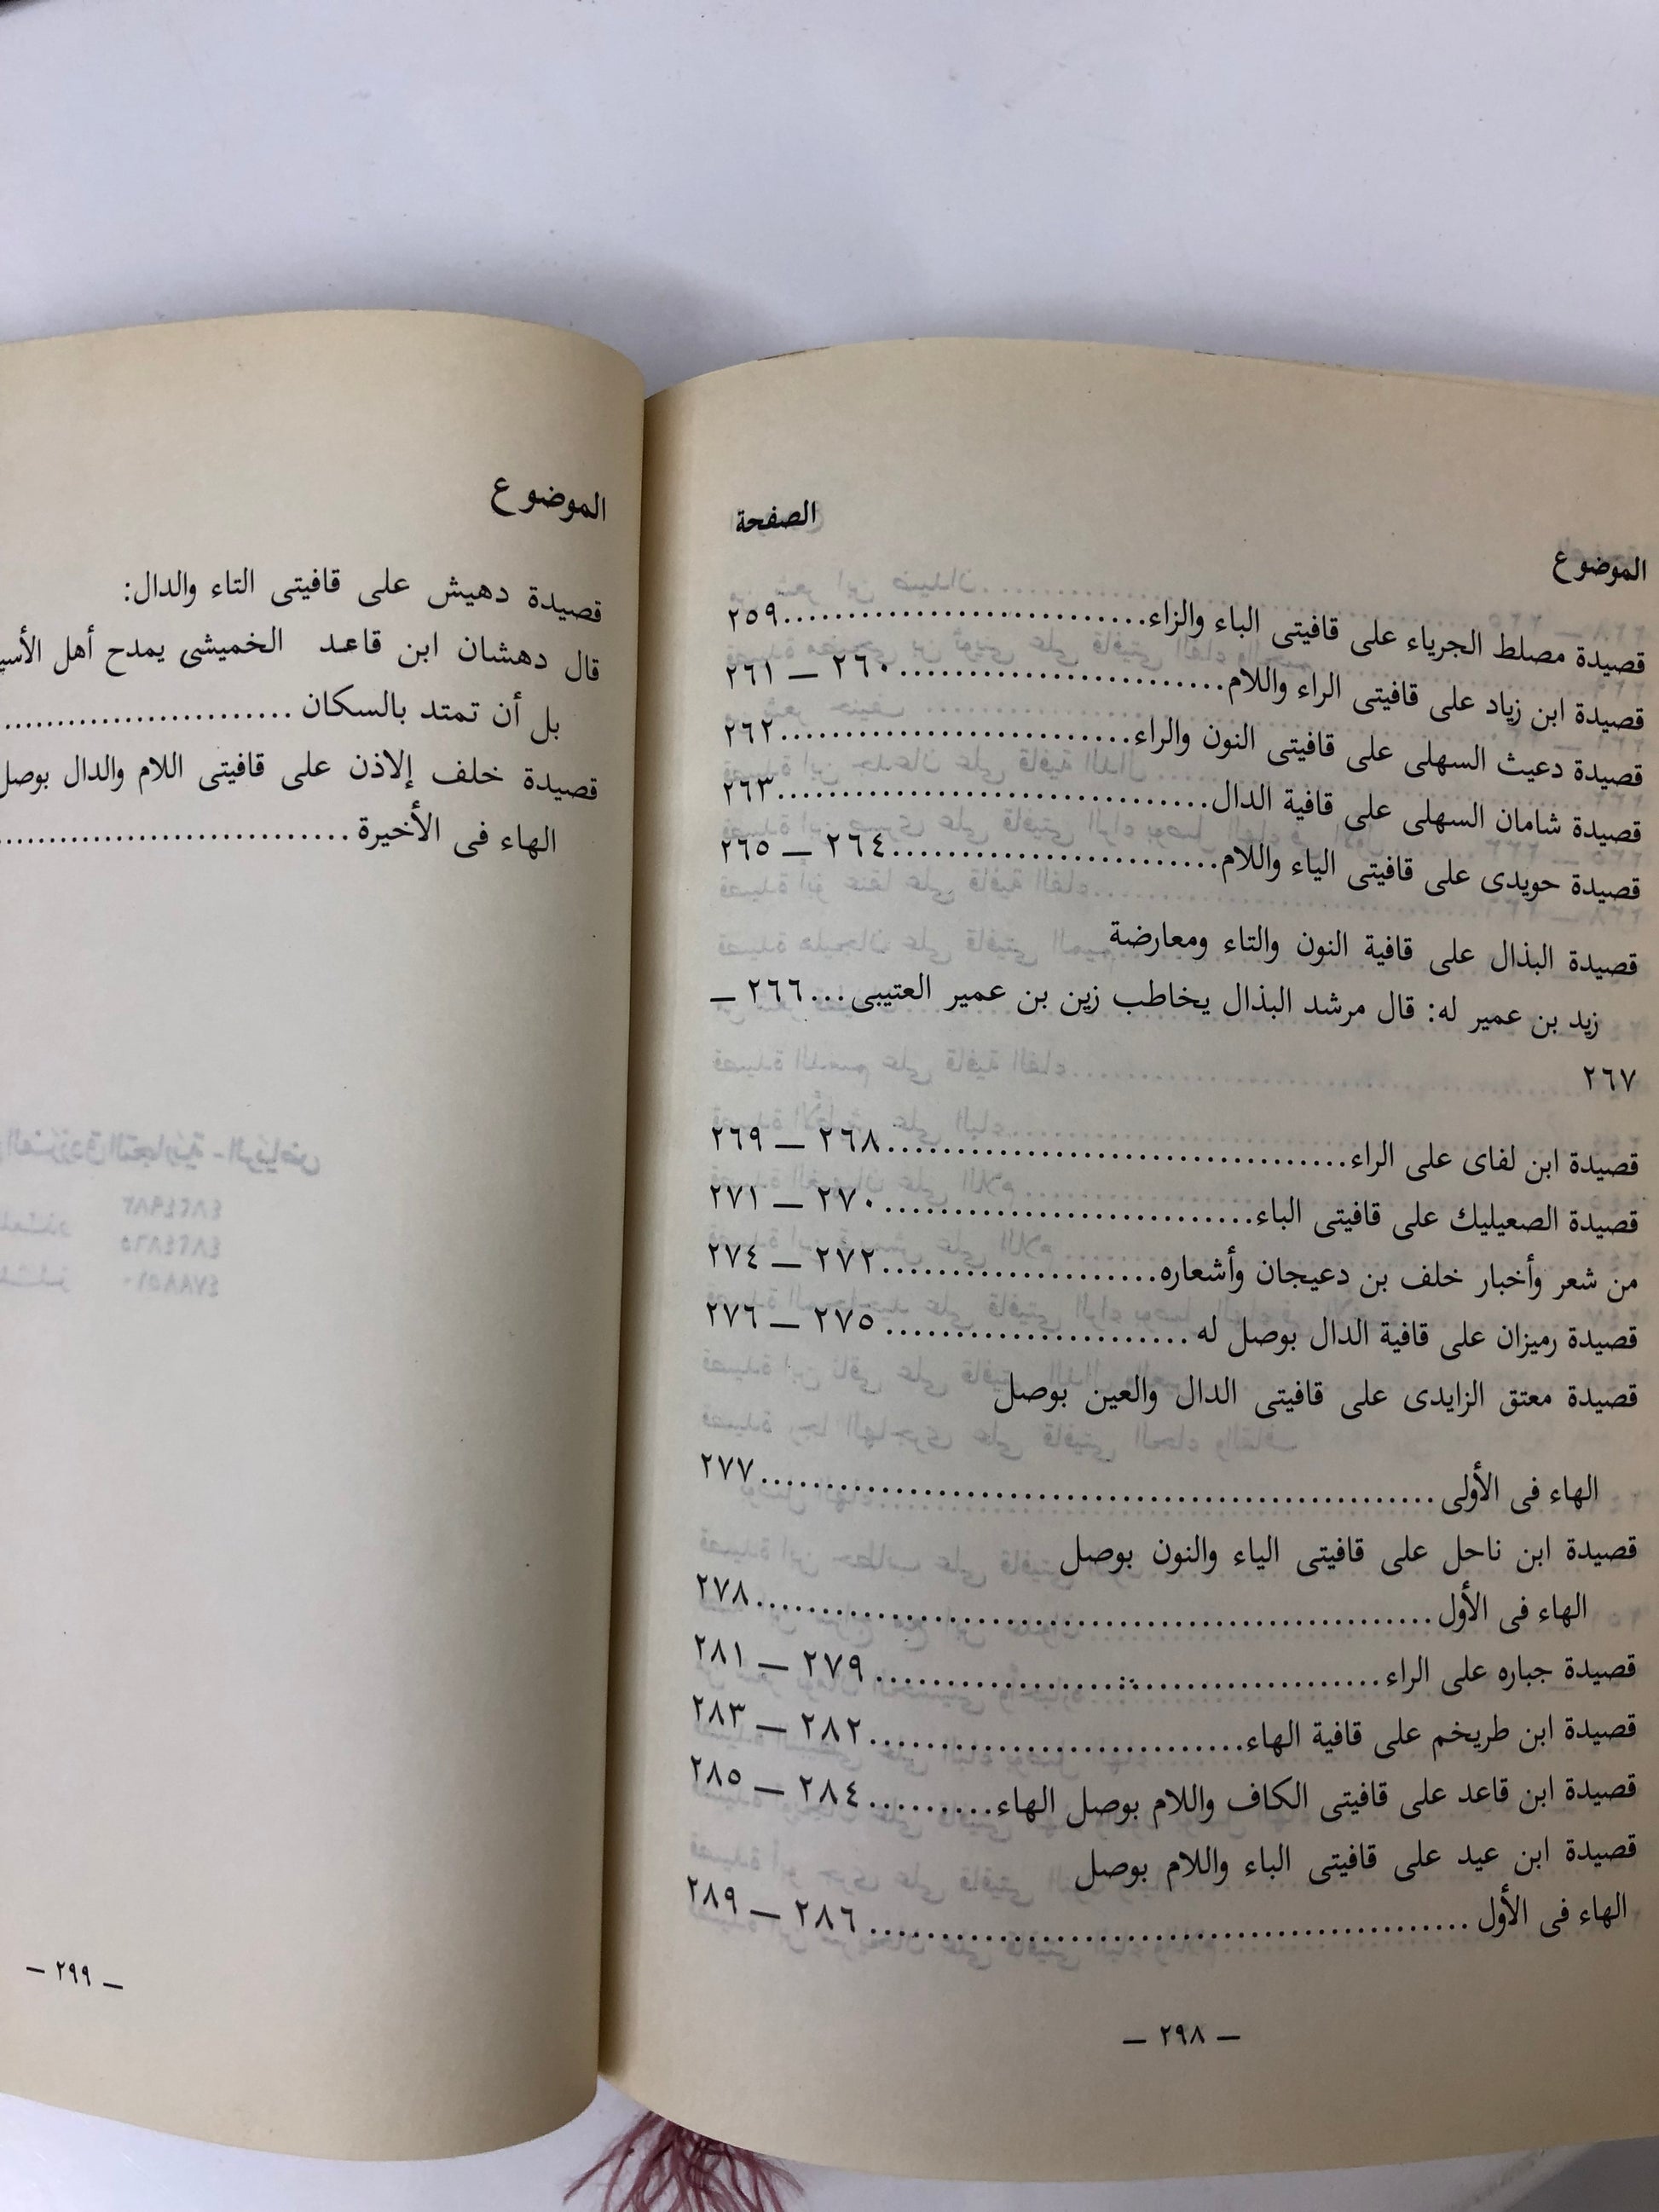 الموضوع الصفحة
قصيدة مصلط الجرباء على قافيتى الباء والزاء..............................٢٥٩
قصيدة ابن زياد على قافيتى الراء واللام........................٢٦٠ — ٢٦١
قصيدة دعيث السهلى على قافيتى النون والراء..........................٢٦٢
قصيدة شامان السهلى على قافية الدال................................٢٦٣
قصيدة حويدى على قافيتى الياء واللام........................٢٦٤ — ٢٦٥
قصيدة البذال على قافية النون والتاء ومعارضة
زيد بن عمير له: قال مرشد البذال يخاطب زين بن عمير العتيبى...٢٦٦ —
٢٦٧
قصيدة ابن لفاى على الراء..................................٢٦٨ — ٢٦٩
قصيدة الصعيليك على قافيتى الباء............................٢٧٠ — ٢٧١
من شعر وأخبار خلف بن دعيجان وأشعاره.....................٢٧٢ — ٢٧٤
قصيدة رميزان على قافية الدال بوصل له.......................٢٧٥ — ٢٧٦
قصيدة معتق الزايدى على قافيتى الدال والعين بوصل
الهاء فى الأولى....................................................٢٧٧
قصيدة ابن ناحل على قافيتى الياء والنون بوصل
الهاء فى الأول....................................................٢٧٨
قصيدة جباره على الراء......................................٢٧٩ — ٢٨١
قصيدة ابن طريخم على قافية الهاء............................٢٨٢ — ٢٨٣
قصيدة ابن قاعد على قافيتى الكاف واللام بوصل الهاء..........٢٨٤ — ٢٨٥
قصيدة ابن عيد على قافيتى الباء واللام بوصل
الهاء فى الأول..............................................٢٨٦ — ٢٨٩
— ٢٩٨ —
الموضوع
قصيدة دهيش على قافيتى التاء والدال:
قال دهشان ابن قاعد الخميشى يمدح أهل
بل أن تمتد بالسكان........................
قصيدة خلف إلاذن على قافيتى اللام والدال بوصل
الهاء فى الأخيرة..............................
— ٢٩٩ —